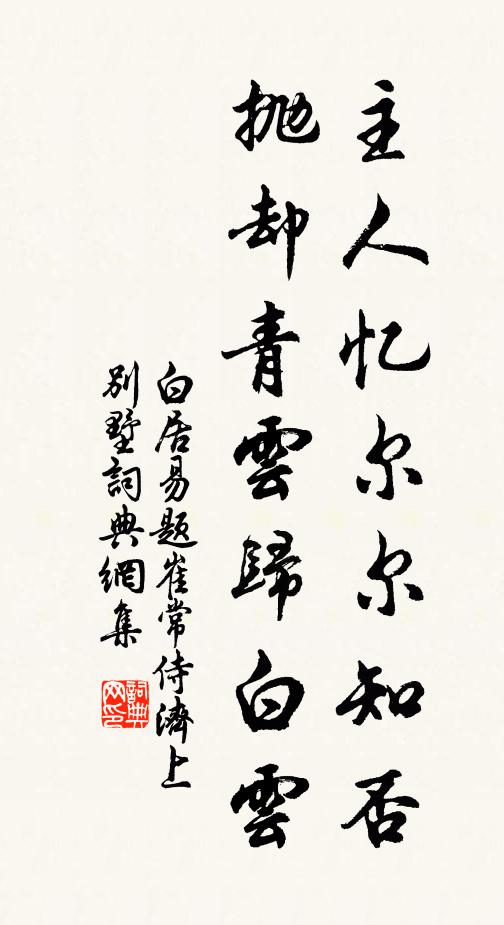 主人忆尔尔知否
抛却青雲歸白雲
白居易题崔常侍濟上
别墅詞典網集
詞典网印